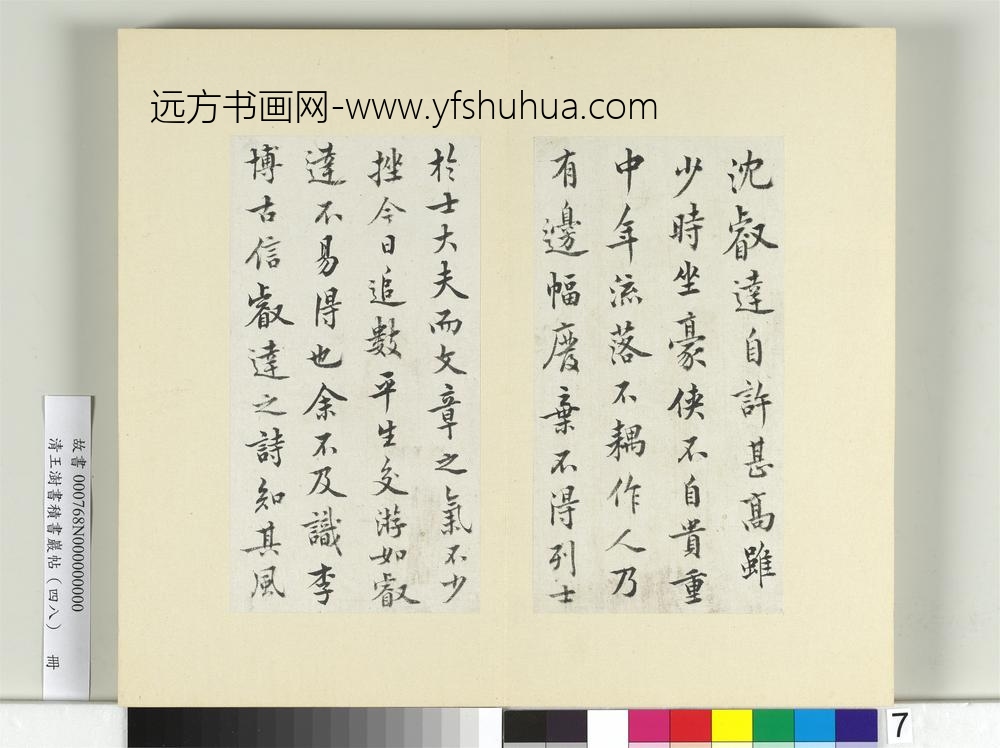 远方书画网-www.yfshuhua.com
沈叡達自許甚高雖
少時坐豪侠不自貴重
中年流落不耦作人乃
有邊幅廢棄不得列士
於士大夫而文章之氣不少
挫今日追數平生交游如叡
達不易得也余不及識李
博古信叡達之詩知其風
故書 000768N000000000
清王澍書積書巖帖(四八) 冊
7